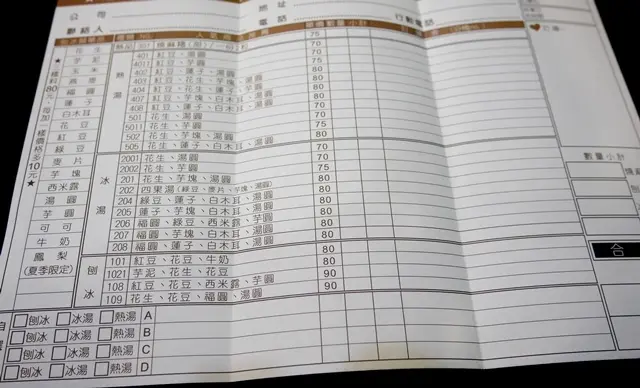 公司
地址
聯絡人
電話
行動電話
數量小計
花生
芋泥
玉米
福圓
蓮子
白木耳
花豆
紅豆
綠豆
麥片
芋塊
西米露
湯圓
芋圓
可可
牛奶
鳳梨
(夏季限定)
熱湯
75
401 紅豆、湯圓 70
4011 紅豆、芋圓 70
402 紅豆、蓮子、湯圓 80
403 紅豆、花生、湯圓 75
404 紅豆、花生、芋圓 75
407 紅豆、芋塊、白木耳 70
408 紅豆、蓮子、白木耳 75
501 花生、湯圓 70
5011 花生、芋圓 70
502 花生、紅豆、湯圓 75
505 花生、蓮子、白木耳、湯圓 80
冰湯
2001 花生、湯圓 70
2002 花生、芋圓 70
201 花生、芋塊、湯圓 75
202 四果湯(綠豆、麥片、芋塊、湯圓) 80
204 綠豆、蓮子、白木耳、湯圓 80
205 蓮子、芋塊、白木耳、湯圓 80
206 福圓、綠豆、西米露、芋圓 80
207 福圓、芋塊、白木耳、湯圓 80
208 福圓、蓮子、白木耳、湯圓 80
刨冰
101 紅豆、花豆、牛奶 80
1021 芋泥、花生、花豆 90
108 紅豆、花豆、西米露、芋圓 80
109 花生、花豆、福圓、湯圓 90
數量小計
合
自
□刨冰 □冰湯 □熱湯 A
□刨冰 □冰湯 □熱湯 B
□刨冰 □冰湯 □熱湯 C
□刨冰 □冰湯 □熱湯 D